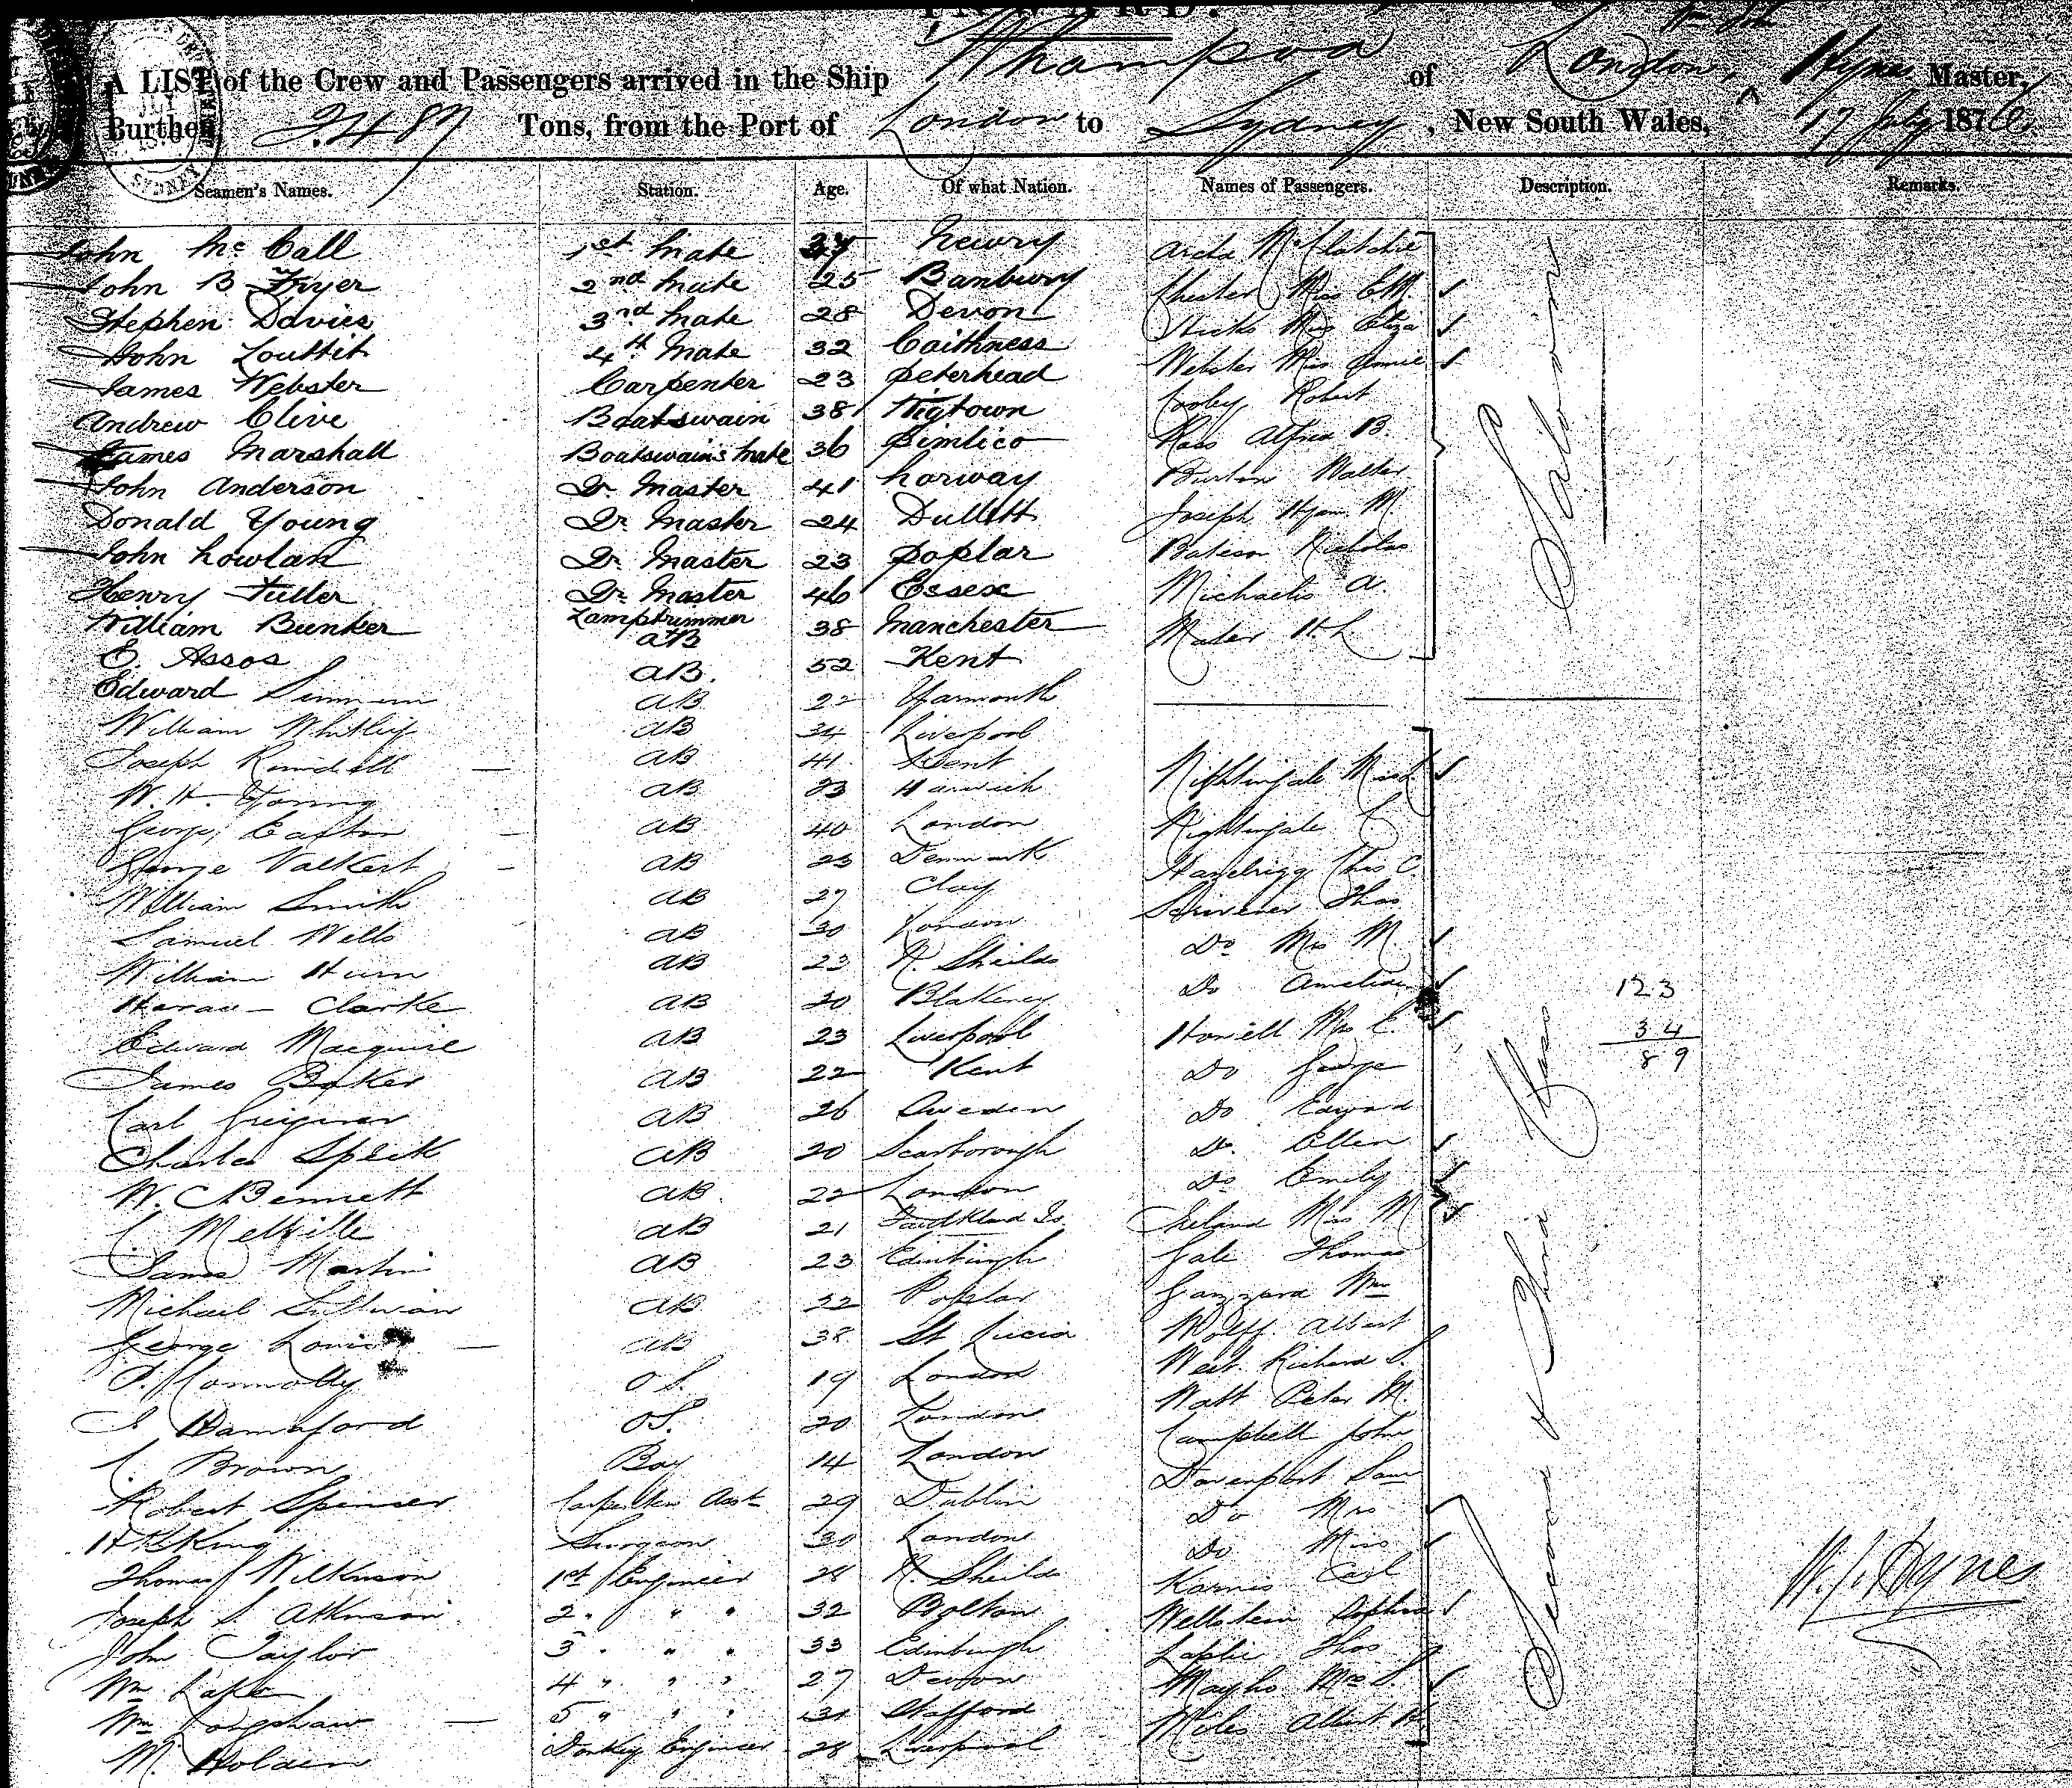 INWARD.
A LIST of the Crew and Passengers arrived in the Ship Whampoa of London, Hynes Master,
Burthen 2487 Tons, from the Port of London to Sydney, New South Wales, 17 July 187
Seamen's Names. Station. Age. Of what Nation. Names of Passengers. Description. Remarks.
John McCall 1st Mate Newry
John B Fryer 2nd Mate 25 Banbury Chester Miss
Stephen Davies 3rd Mate 28 Devon Hicks Miss Eliza
John Louttit 4th Mate 32 Caithness Webster Miss
James Webster Carpenter 23 Peterhead Robert
Andrew Clive Boatswain 38 Wigtown Alfred B.
James Marshall Boatswains Mate 36 Pimlico Burton Walter
John Anderson Qr. Master 41 Norway Joseph Hyam M
Donald Young Qr. Master 24 Bateson Nicholas
John Nowlan Qr. Master 23 Poplar Michaelis A.
Henry Fuller Qr. Master 46 Essex H L
William Bunker Lamptrimmer AB 38 Manchester
E. Assos AB. 52 Kent
Edward AB 22 Yarmouth
William Whitley AB 34 Liverpool
Joseph AB 41 Kent Nightingale
W. H. Young AB 23 Harwich Nightingale
George AB 40 London Thos C.
George Valkert AB 23 Denmark Scrivener Thos
William Smith AB 27 Clay Do Mrs M.
Samuel Wells AB 30 London Do Amelia
William AB 23 N. Sheilds Howell Mrs E.
Clarke AB 20 Blakeney Do George
Edward Macquire AB 23 Liverpool Do Edward
James Baker AB 22 Kent Do Ellen
Carl AB 26 Sweden Do Emily
Charles AB 20 Scarborough Ireland M
W. Bennett AB. 22 London Gale Thomas
C. Melville AB 21 Faulkland Is. Wm
James Martin AB 23 Edinburgh Wolff Albert
Michael Sullivan AB 22 Poplar West Richard S.
George Louis AB 38 St Lucia Watt Peter M.
P. Connolly O S. 19 London Campbell John
Hannaford OS. 20 London Davenport Saml
C. Brown Boy 14 London Do Mrs
Robert Spenser Carpenters Asst 29 Dublin Do Miss
King Surgeon 30 London Karnis Carl
Thomas Wilkinson 1st Engineer 28 N. Sheilds Wellstein Sophia
Joseph S. Atkinson 2 " " 32 Bolton Thos
John Taylor 3 " " 33 Edinburgh Mrs S.
Wm 4 " " 27 Devon Miles Albert H.
Wm Longshaw 5 " " 31 Stafford
M. Holden Donkey Engineer 28 Liverpool
Saloon
Second & Third Class
123
34
89
W. J. Hynes